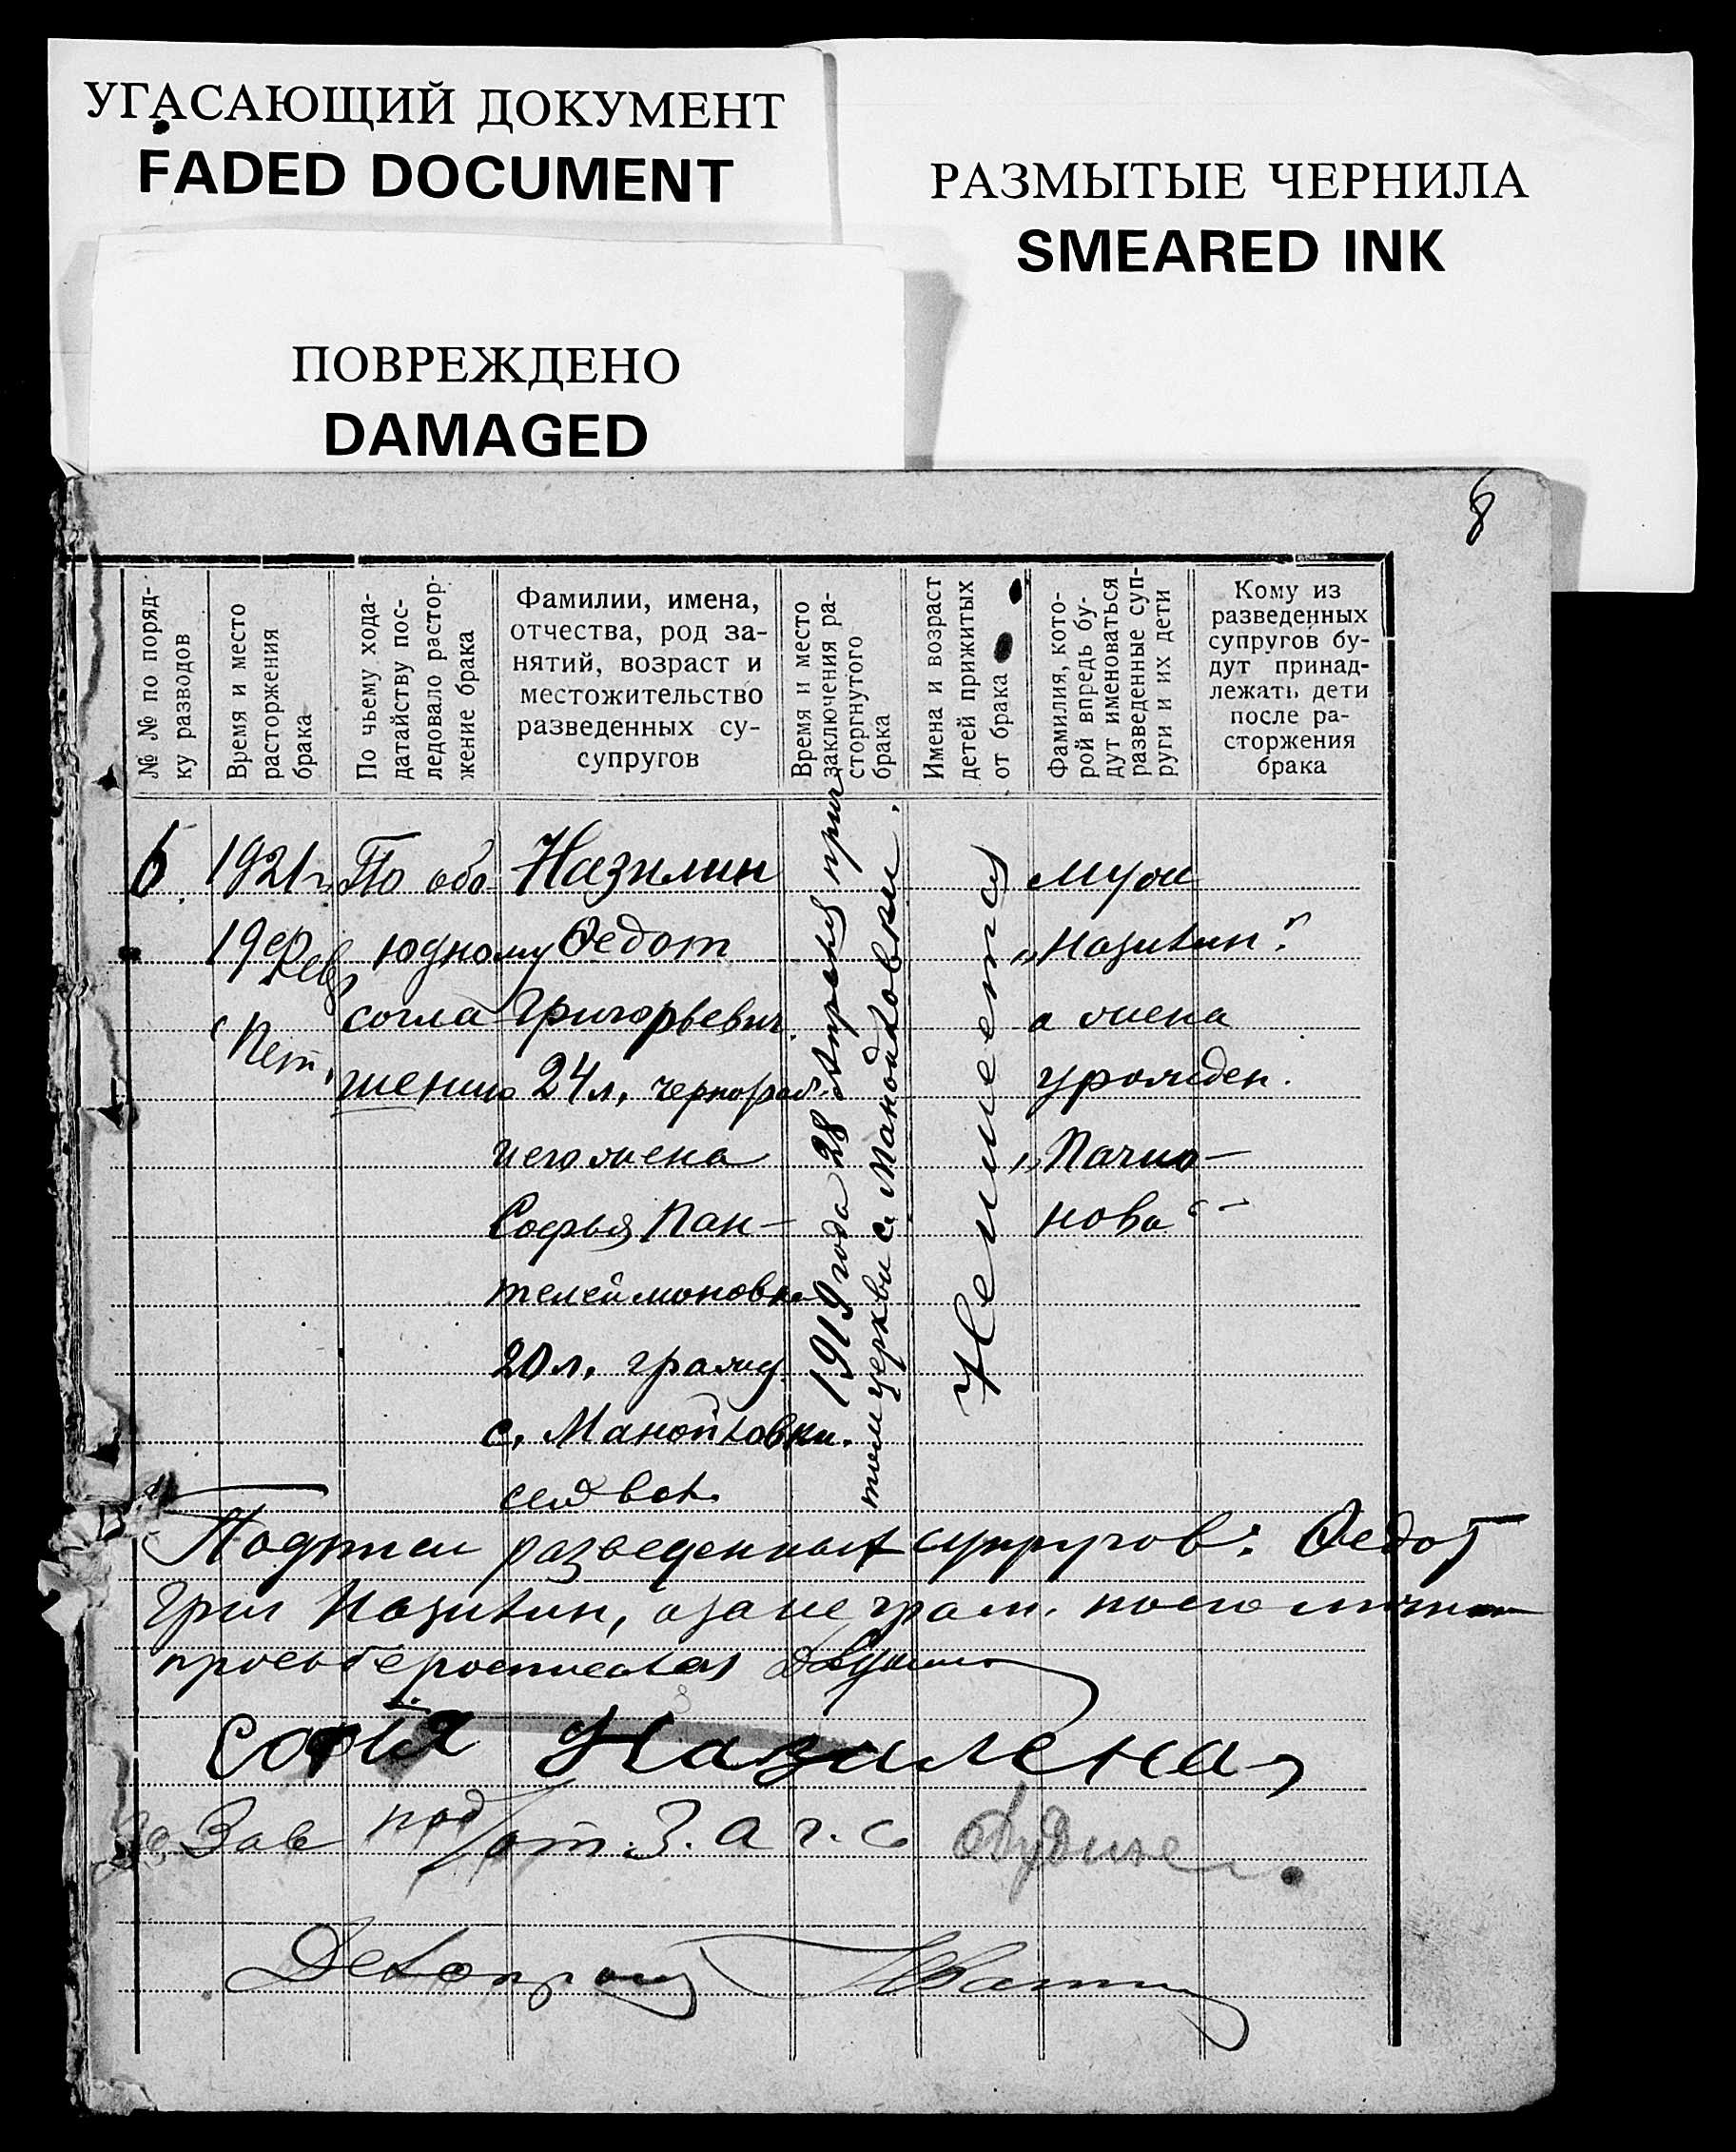 УГАСАЮЩИЙ ДОКУМЕНТ
FADED DOCUMENT
РАЗМЫТЫЕ ЧЕРНИЛА
SMEARED INK
ПОВРЕЖДЕНО
DAMAGED
8
№ № по поряд-
ку разводов
Время и место
расторжения
брака
По чьему хода-
датайству пос-
ледовало растор-
жение брака
Фамилии, имена,
отчества, род за-
нятий, возраст и
местожительство
разведенных су-
супругов
Время и место
заключения ра-
сторгнутого
брака
Имена и возраст
детей прижитых
от брака
Фамилия, кото-
рой впредь бу-
дут именоваться
разведенные суп-
руги и их дети
Кому из
разведенных
супругов бу-
дут принад-
лежать дети
после ра-
сторжения
брака
6
1921 г.
19 Фев.
Пет.
По обо
юдному
согла
шению
Назилин
Федот
Григорьевич
24 л. чернораб.
его жена
Софья Пан-
телеймоновна
20 л. гражд.
с.
1919 года 28 Апреля прич
том церкви с.
Не имеется
муж
„Назилин"
а жена
урожден.
нова"
Подписи разведенных супругов: Федот
Григ Назилин, а за не грам. по его личной
просьбе росписался
София Назилена
Зав под/от. З. А Г. С
Делопроиз